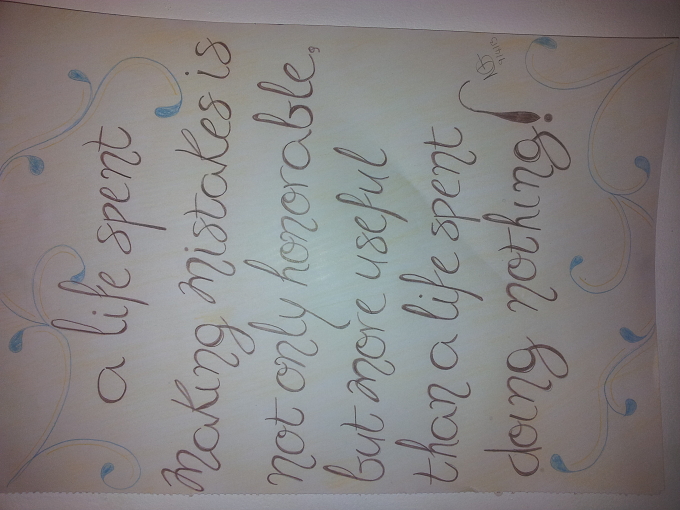 a life spent
making mistakes is
not only honorable,
but more useful
than a life spent
doing nothing!